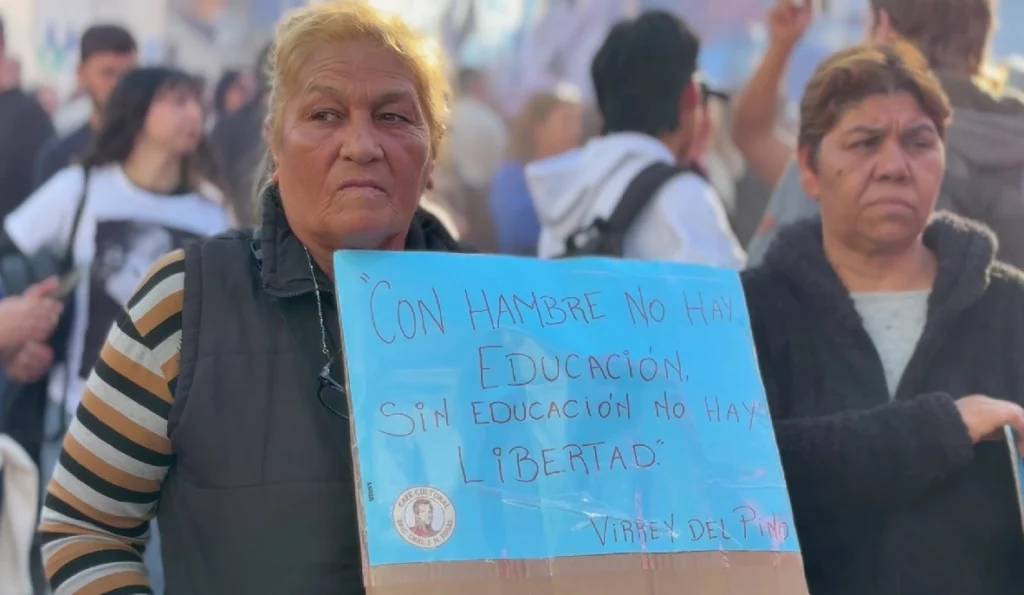 "CON HAMBRE NO HAY
EDUCACIÓN.
SIN EDUCACIÓN NO HAY
LIBERTAD."
VIRREY DEL PINO
CAFE CULTURAL